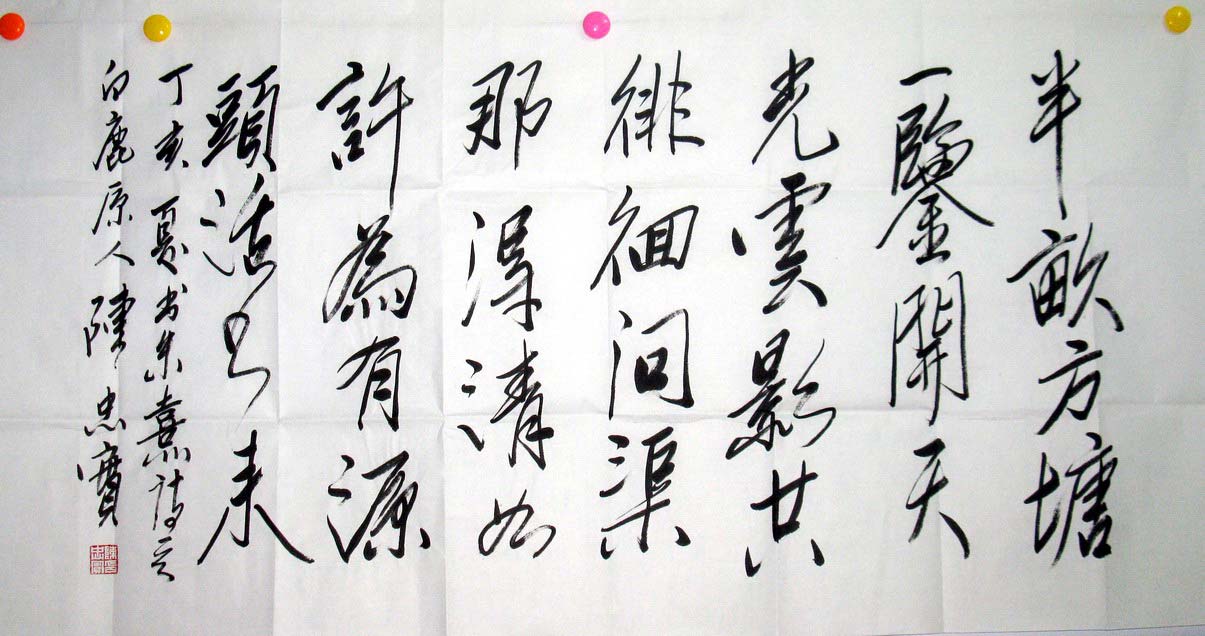 半畝方塘
一鑒開天
光雲影共
徘徊问渠
那得清如
許為有源
頭活水来
丁亥夏书朱熹诗云
白鹿原人陳忠實
陳忠實